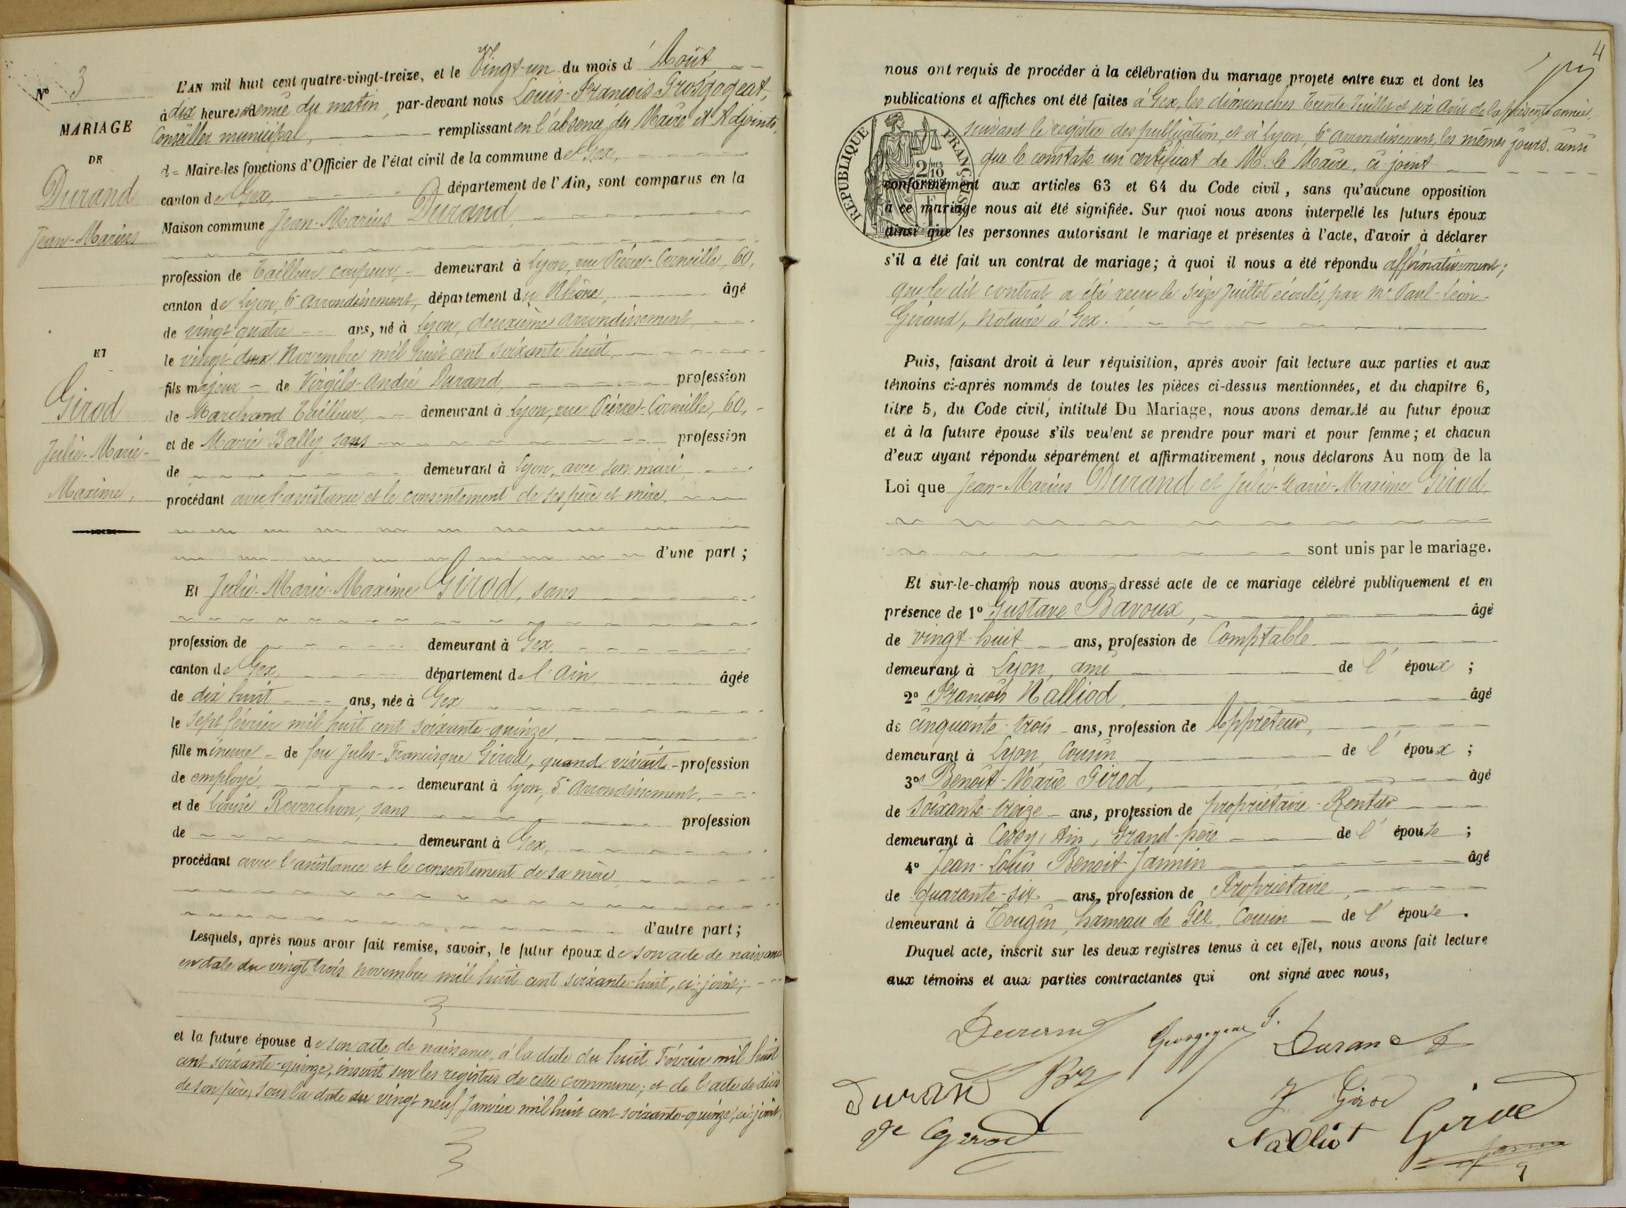 N° 3
MARIAGE
DE
Durand
Jean-Marius
ET
Girod
Julie-Marie-
Maxime,
L'AN mil huit cent quatre-vingt-treize, et le Vingt-un du mois d'Août
à dix heures du matin, par-devant nous Louis-François Grosgogeat,
Conseiller municipal, remplissant en l'absence du Maire et Adjoints,
d Maire les fonctions d'Officier de l'état civil de la commune de Gex,
canton de Gex, département de l'Ain, sont comparus en la
Maison commune Jean-Marius Durand,
profession de Tailleur coupeur, demeurant à Lyon, rue Pierre-Corneille, 60,
canton de Lyon, 6e arrondissement, département du Rhône, âgé
de vingt quatre ans, né à Lyon, deuxième arrondissement,
le vingt deux Novembre mil huit cent soixante huit,
fils majeur de Virgile-André Durand, profession
de Marchand Tailleur, demeurant à Lyon, rue Pierre-Corneille, 60,
et de Marie Bally, sans profession
de demeurant à Lyon, avec son mari
procédant avec l'assistance et le consentement de ses père et mère,
d'une part;
Et Julie-Marie-Maxime Girod, sans
profession de demeurant à Gex,
canton de Gex, département de l'Ain, âgée
de dix huit ans, née à Gex
le sept février mil huit cent soixante-quinze,
fille mineure de feu Jules-Francisque Girod, quand vivait profession
de employé, demeurant à Lyon, 5e arrondissement,
et de Louise Reverchon, sans profession
de demeurant à Gex,
procédant avec l'assistance et le consentement de sa mère
d'autre part;
Lesquels, après nous avoir fait remise, savoir, le futur époux de son acte de naissance
en date du vingt trois novembre mil huit cent soixante-huit, ci-joint;
et la future épouse de son acte de naissance, à la date du huit Février mil huit
cent soixante-quinze, inscrit sur les registres de cette commune; et de l'acte de décès
de son père, sous la date du vingt neuf Janvier mil huit cent soixante-quinze, ci-joint,
4
nous ont requis de procéder à la célébration du mariage projeté entre eux et dont les
publications et affiches ont été faites à Gex, les dimanches Trente Juillet et six Août de la présente année,
suivant le registre des publications, et à Lyon, 6e arrondissement, les mêmes jours, ainsi
que le constate un certificat de M. le Maire, ci joint
RÉPUBLIQUE FRANÇAISE
conformément aux articles 63 et 64 du Code civil, sans qu'aucune opposition
à ce mariage nous ait été signifiée. Sur quoi nous avons interpellé les futurs époux
ainsi que les personnes autorisant le mariage et présentes à l'acte, d'avoir à déclarer
s'il a été fait un contrat de mariage; à quoi il nous a été répondu affirmativement;
que le dit contrat a été reçu le seize Juillet écoulé, par Me Paul-Léon
Girand, Notaire à Gex.
Puis, faisant droit à leur réquisition, après avoir fait lecture aux parties et aux
témoins ci-après nommés de toutes les pièces ci-dessus mentionnées, et du chapitre 6,
titre 5, du Code civil, intitulé Du Mariage, nous avons demandé au futur époux
et à la future épouse s'ils veulent se prendre pour mari et pour femme; et chacun
d'eux ayant répondu séparément et affirmativement, nous déclarons Au nom de la
Loi que Jean-Marius Durand et Julie-Marie-Maxime Girod
sont unis par le mariage.
Et sur-le-champ nous avons dressé acte de ce mariage célébré publiquement et en
présence de 1° Gustave Bavoux, âgé
de vingt-huit ans, profession de Comptable
demeurant à Lyon, ami de l'époux;
2° François Nalliod, âgé
de cinquante-trois ans, profession de Apprêteur,
demeurant à Lyon, Cousin de l'époux;
3° Benoît-Marie Girod, âgé
de soixante-treize ans, profession de propriétaire-Rentier
demeurant à Cessy, Ain, Grand-père de l'épouse;
4° Jean-Louis Benoit-Jannin âgé
de quarante-six ans, profession de Propriétaire,
demeurant à Tougin, hameau de Gex, Cousin de l'épouse.
Duquel acte, inscrit sur les deux registres tenus à cet effet, nous avons fait lecture
aux témoins et aux parties contractantes qui ont signé avec nous,
Durand
Durand
Durand
J Girod
Ve Girod
Nalliod
Girod